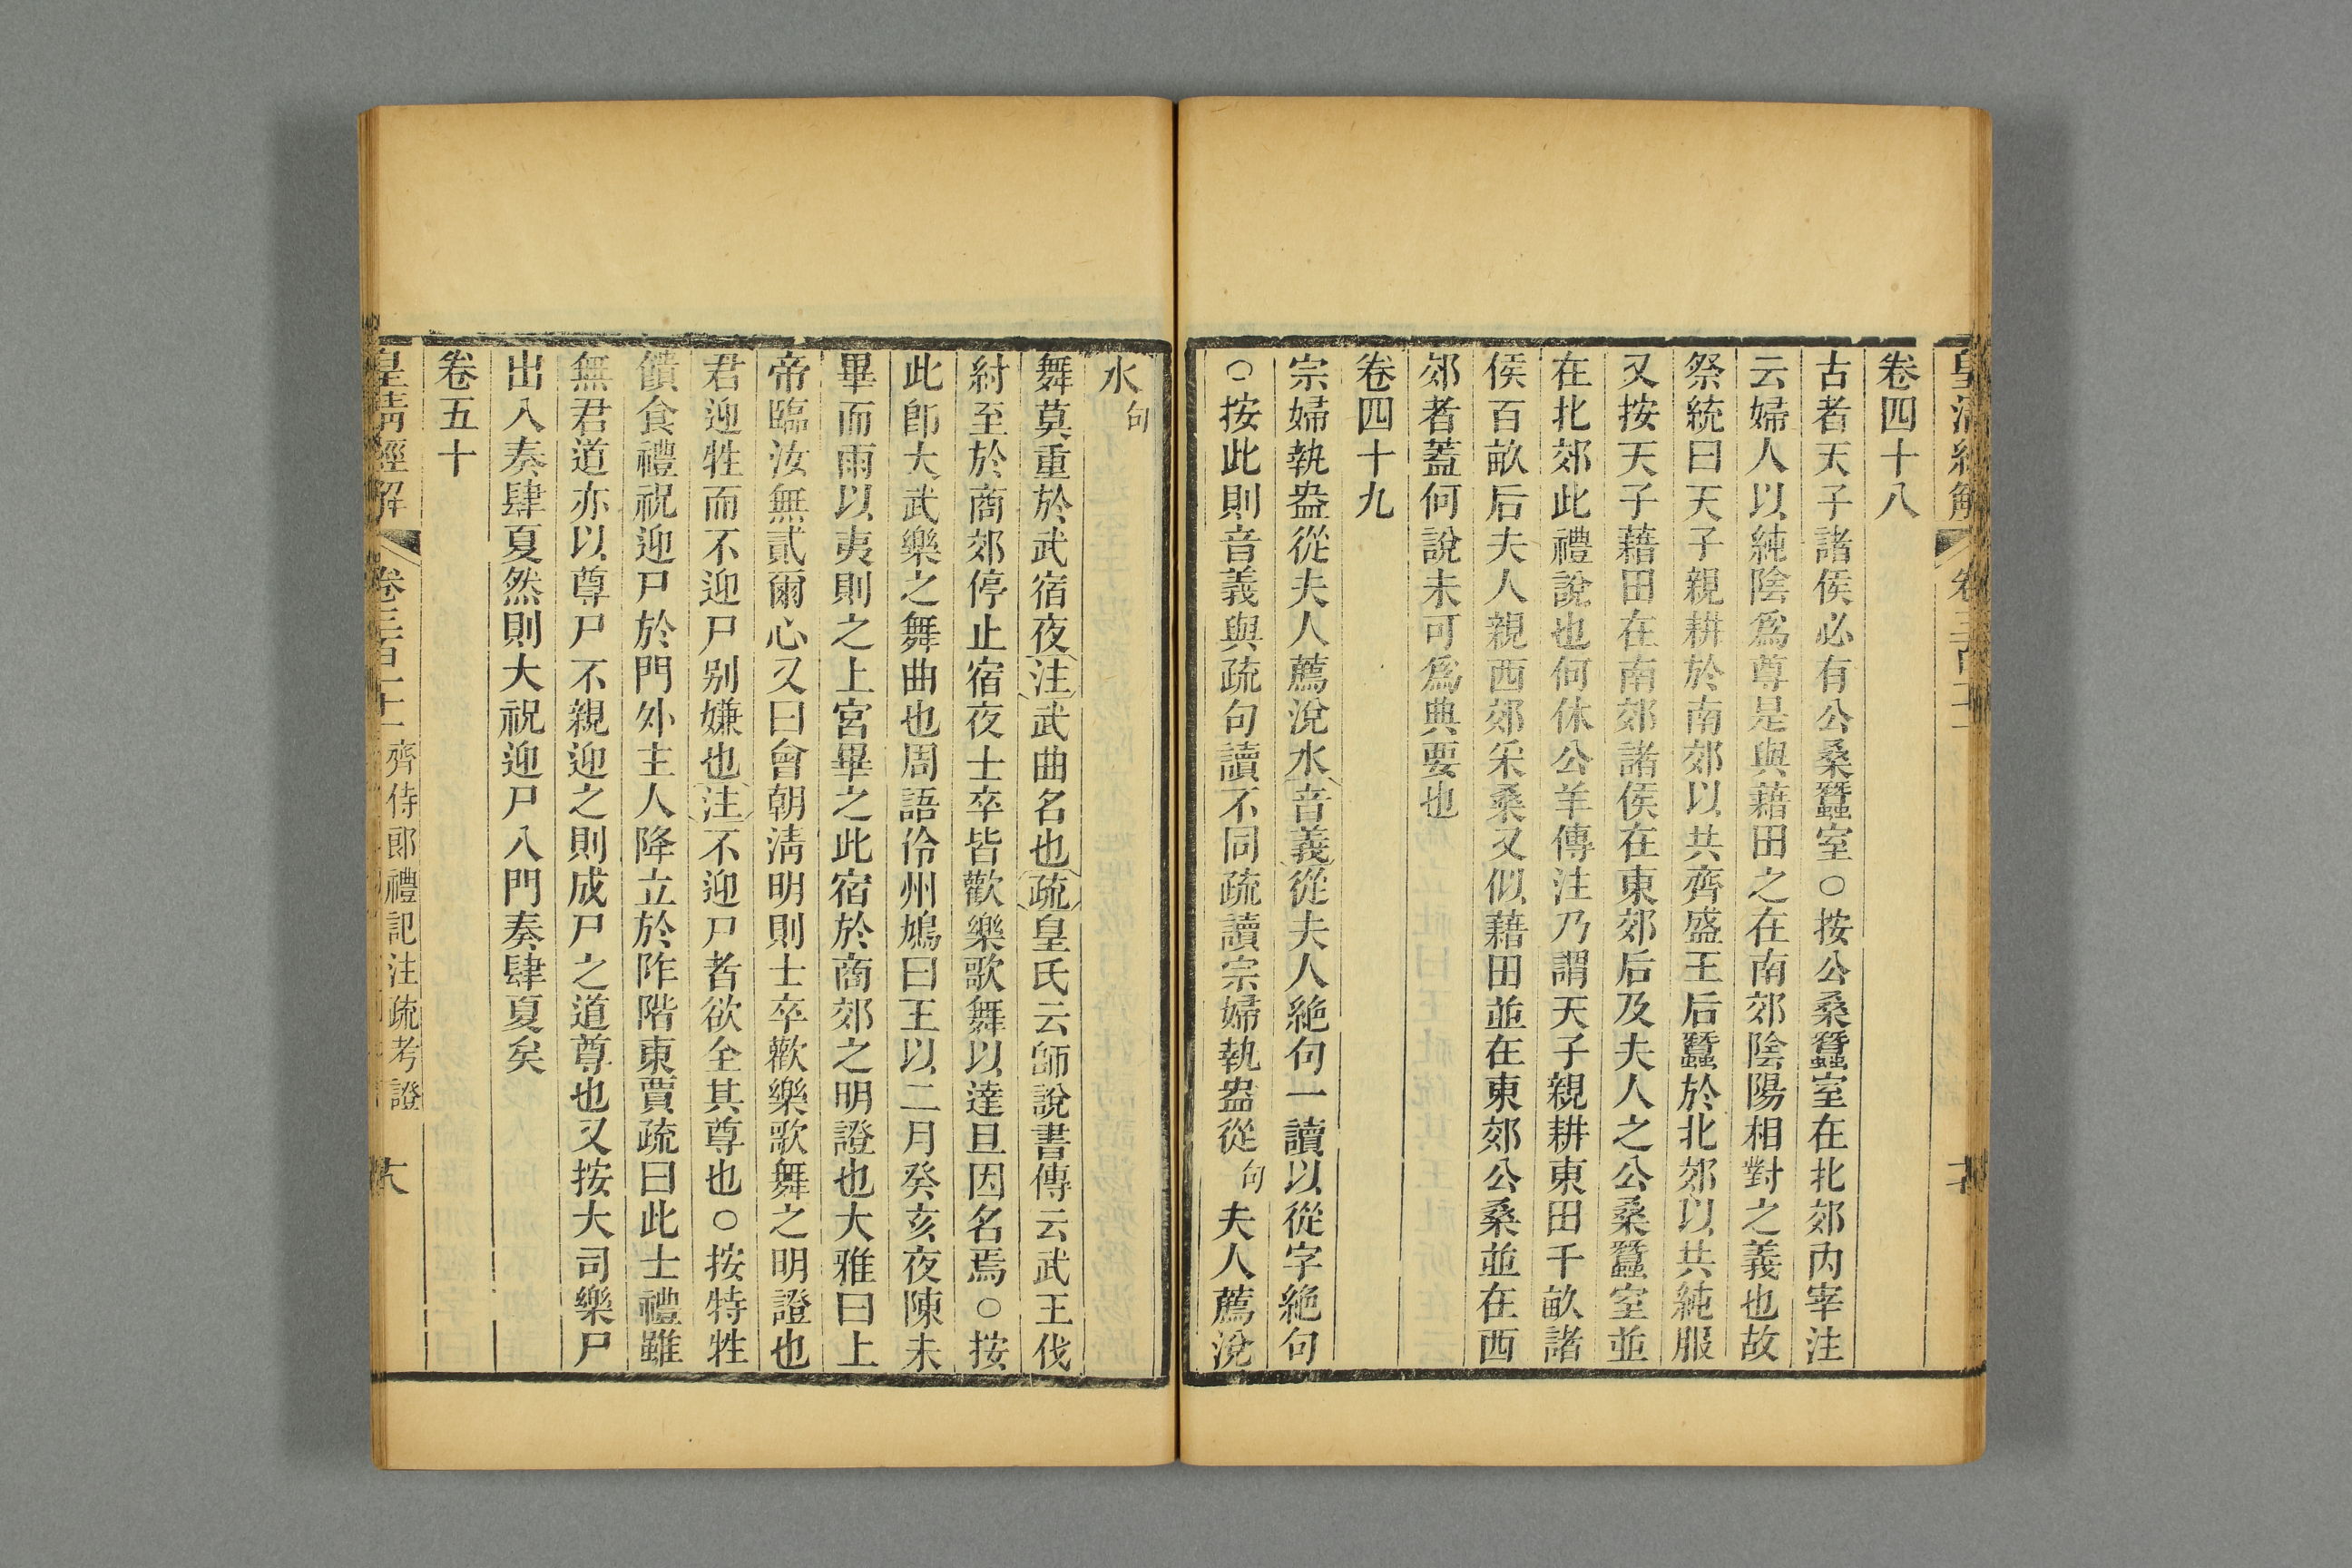 皇清經解
卷四十八
古者天子諸侯必有公桑蠶室○按公桑蠶室在北郊內宰注
云婦人以純陰爲尊是與藉田之在南郊陰陽相對之義也故
祭統曰天子親耕於南郊以共齊盛王后蠶於北郊以共純服
又按天子藉田在南郊諸侯在東郊后及夫人之公桑蠶室並
在北郊此禮說也何休公羊傳注乃謂天子親耕東田千畝諸
侯百畝后夫人親西郊采桑又似藉田並在東郊公桑並在西
郊者蓋何說未可爲典要也
卷四十九
宗婦執盎從夫人薦涗水音義從夫人絶句一讀以從字絶句
○按此則音義與疏句讀不同疏讀宗婦執盎從句夫人薦涗
水句
舞莫重於武宿夜注武曲名也疏皇氏云師說書傳云武王伐
紂至於商郊停止宿夜士卒皆歡樂歌舞以達旦因名焉○按
此卽大武樂之舞曲也周語伶州鳩曰王以二月癸亥夜陳未
畢而雨以夷則之上宮畢之此宿於商郊之明證也大雅曰上
帝臨汝無貳爾心又曰會朝淸明則士卒歡樂歌舞之明證也
君迎牲而不迎尸别嫌也注不迎尸者欲全其尊也○按特牲
饋食禮祝迎尸於門外主人降立於阼階東賈疏曰此士禮雖
無君道亦以尊尸不親迎之則成尸之道尊也又按大司樂尸
出入奏肆夏然則大祝迎尸入門奏肆夏矣
卷五十
皇清經解 卷三百十二 齊侍郎禮記注疏考證 大